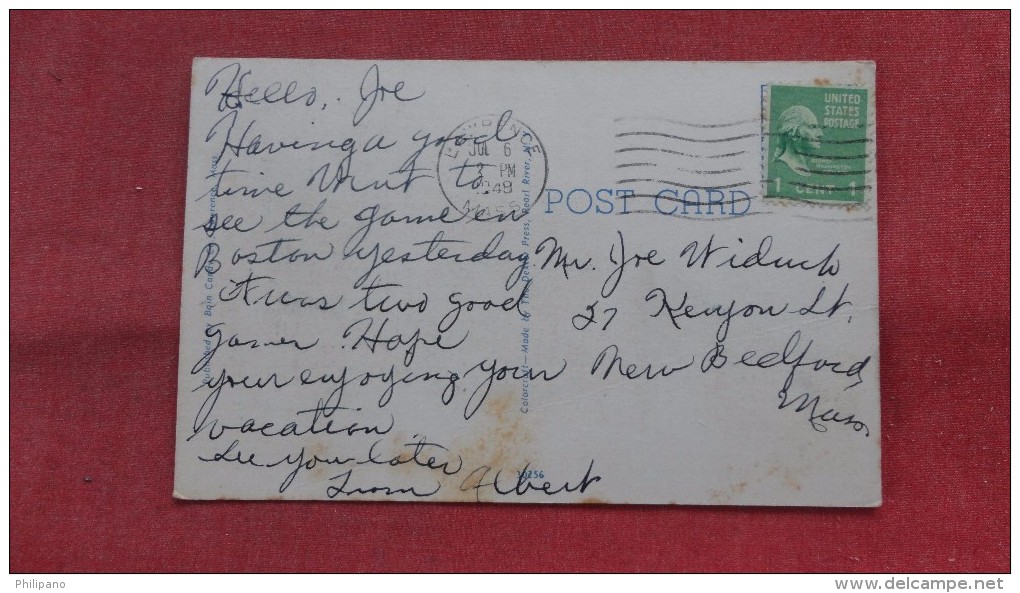 Hello, Joe
Having a good
time Went to
see the game in
Boston yesterday.
It was two good
games. Hope
your enjoying your
vacation
See you later
From Albert
LAWRENCE
JUL 6
2 PM
1948
MASS
UNITED
STATES
POSTAGE
1 CENT 1
POST CARD
Mr. Joe Widuch
27 Kenyon St.
New Bedford,
Mass
Published by Bain Lawrence, Mass.
Colorcraft—Made by The Dexter Press, Pearl River, N.Y.
10256
Philipano
www.delcampe.net